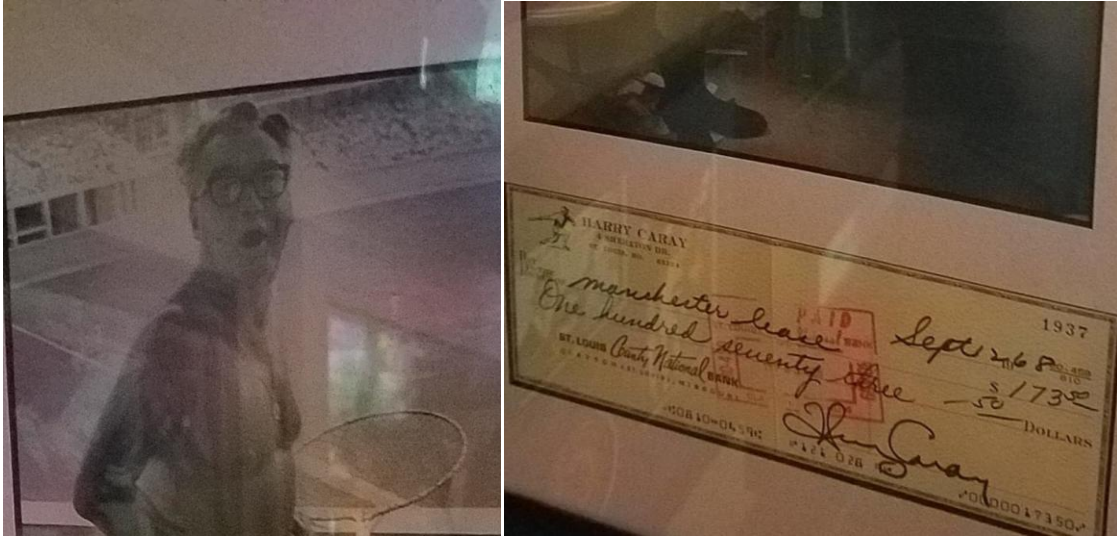 HARRY CARAY
ST. LOUIS, MO.
1937
Sept 12, 68
manchester lease
$ 173 50
One hundred seventy three 50
DOLLARS
PAID
ST. LOUIS County National BANK
Harry Caray
"0000017350"